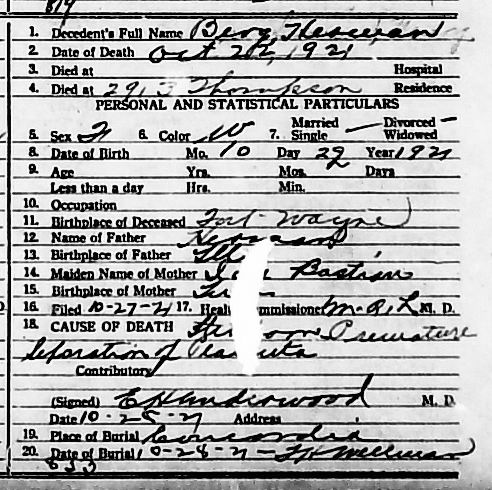 819
1. Decedent's Full Name Berg, Herman
2. Date of Death Oct. 22, 1921
3. Died at Hospital
4. Died at 2913 Thompson Residence
PERSONAL AND STATISTICAL PARTICULARS
5. Sex F 6. Color W 7. Married Single — Divorced Widowed —
8. Date of Birth Mo. 10 Day 22 Year 1921
9. Age Yrs. Mos. Days
Less than a day Hrs. Min.
10. Occupation
11. Birthplace of Deceased Fort Wayne
12. Name of Father Herman
13. Birthplace of Father
14. Maiden Name of Mother Bastian
15. Birthplace of Mother
16. Filed 10-27-21 17. Health Commissioner M. D.
18. CAUSE OF DEATH Premature
Separation of Placenta
Contributory
(Signed) E H Underwood M. D.
Date 10-25-21 Address
19. Place of Burial Concordia
20. Date of Burial 10-28-21 — Wellman
833